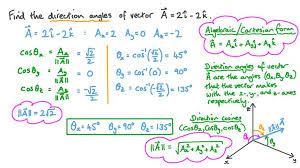 Find the direction angles of vector A⃗ = 2î - 2k̂.
A⃗ = 2î - 2k̂ : Ax = 2 Ay = 0 Az = -2
cosθx = Ax/||A⃗|| = √2/2
cosθy = Ay/||A⃗|| = 0
cosθz = Az/||A⃗|| = -√2/2
||A⃗|| = 2√2
θx = cos⁻¹(√2/2) = 45°
θy = cos⁻¹(0) = 90°
θz = cos⁻¹(-√2/2) = 135°
θx = 45° θy = 90° θz = 135°
Algebraic/Cartesian form
A⃗ = Axî + Ayĵ + Azk̂
Direction angles of vector
A⃗ are the angles (θx, θy, θz)
that the vector makes
with the x-, y-, and z-axes
respectively.
Direction cosines
(cosθx, cosθy, cosθz)
||A⃗|| = √Ax² + Ay² + Az²